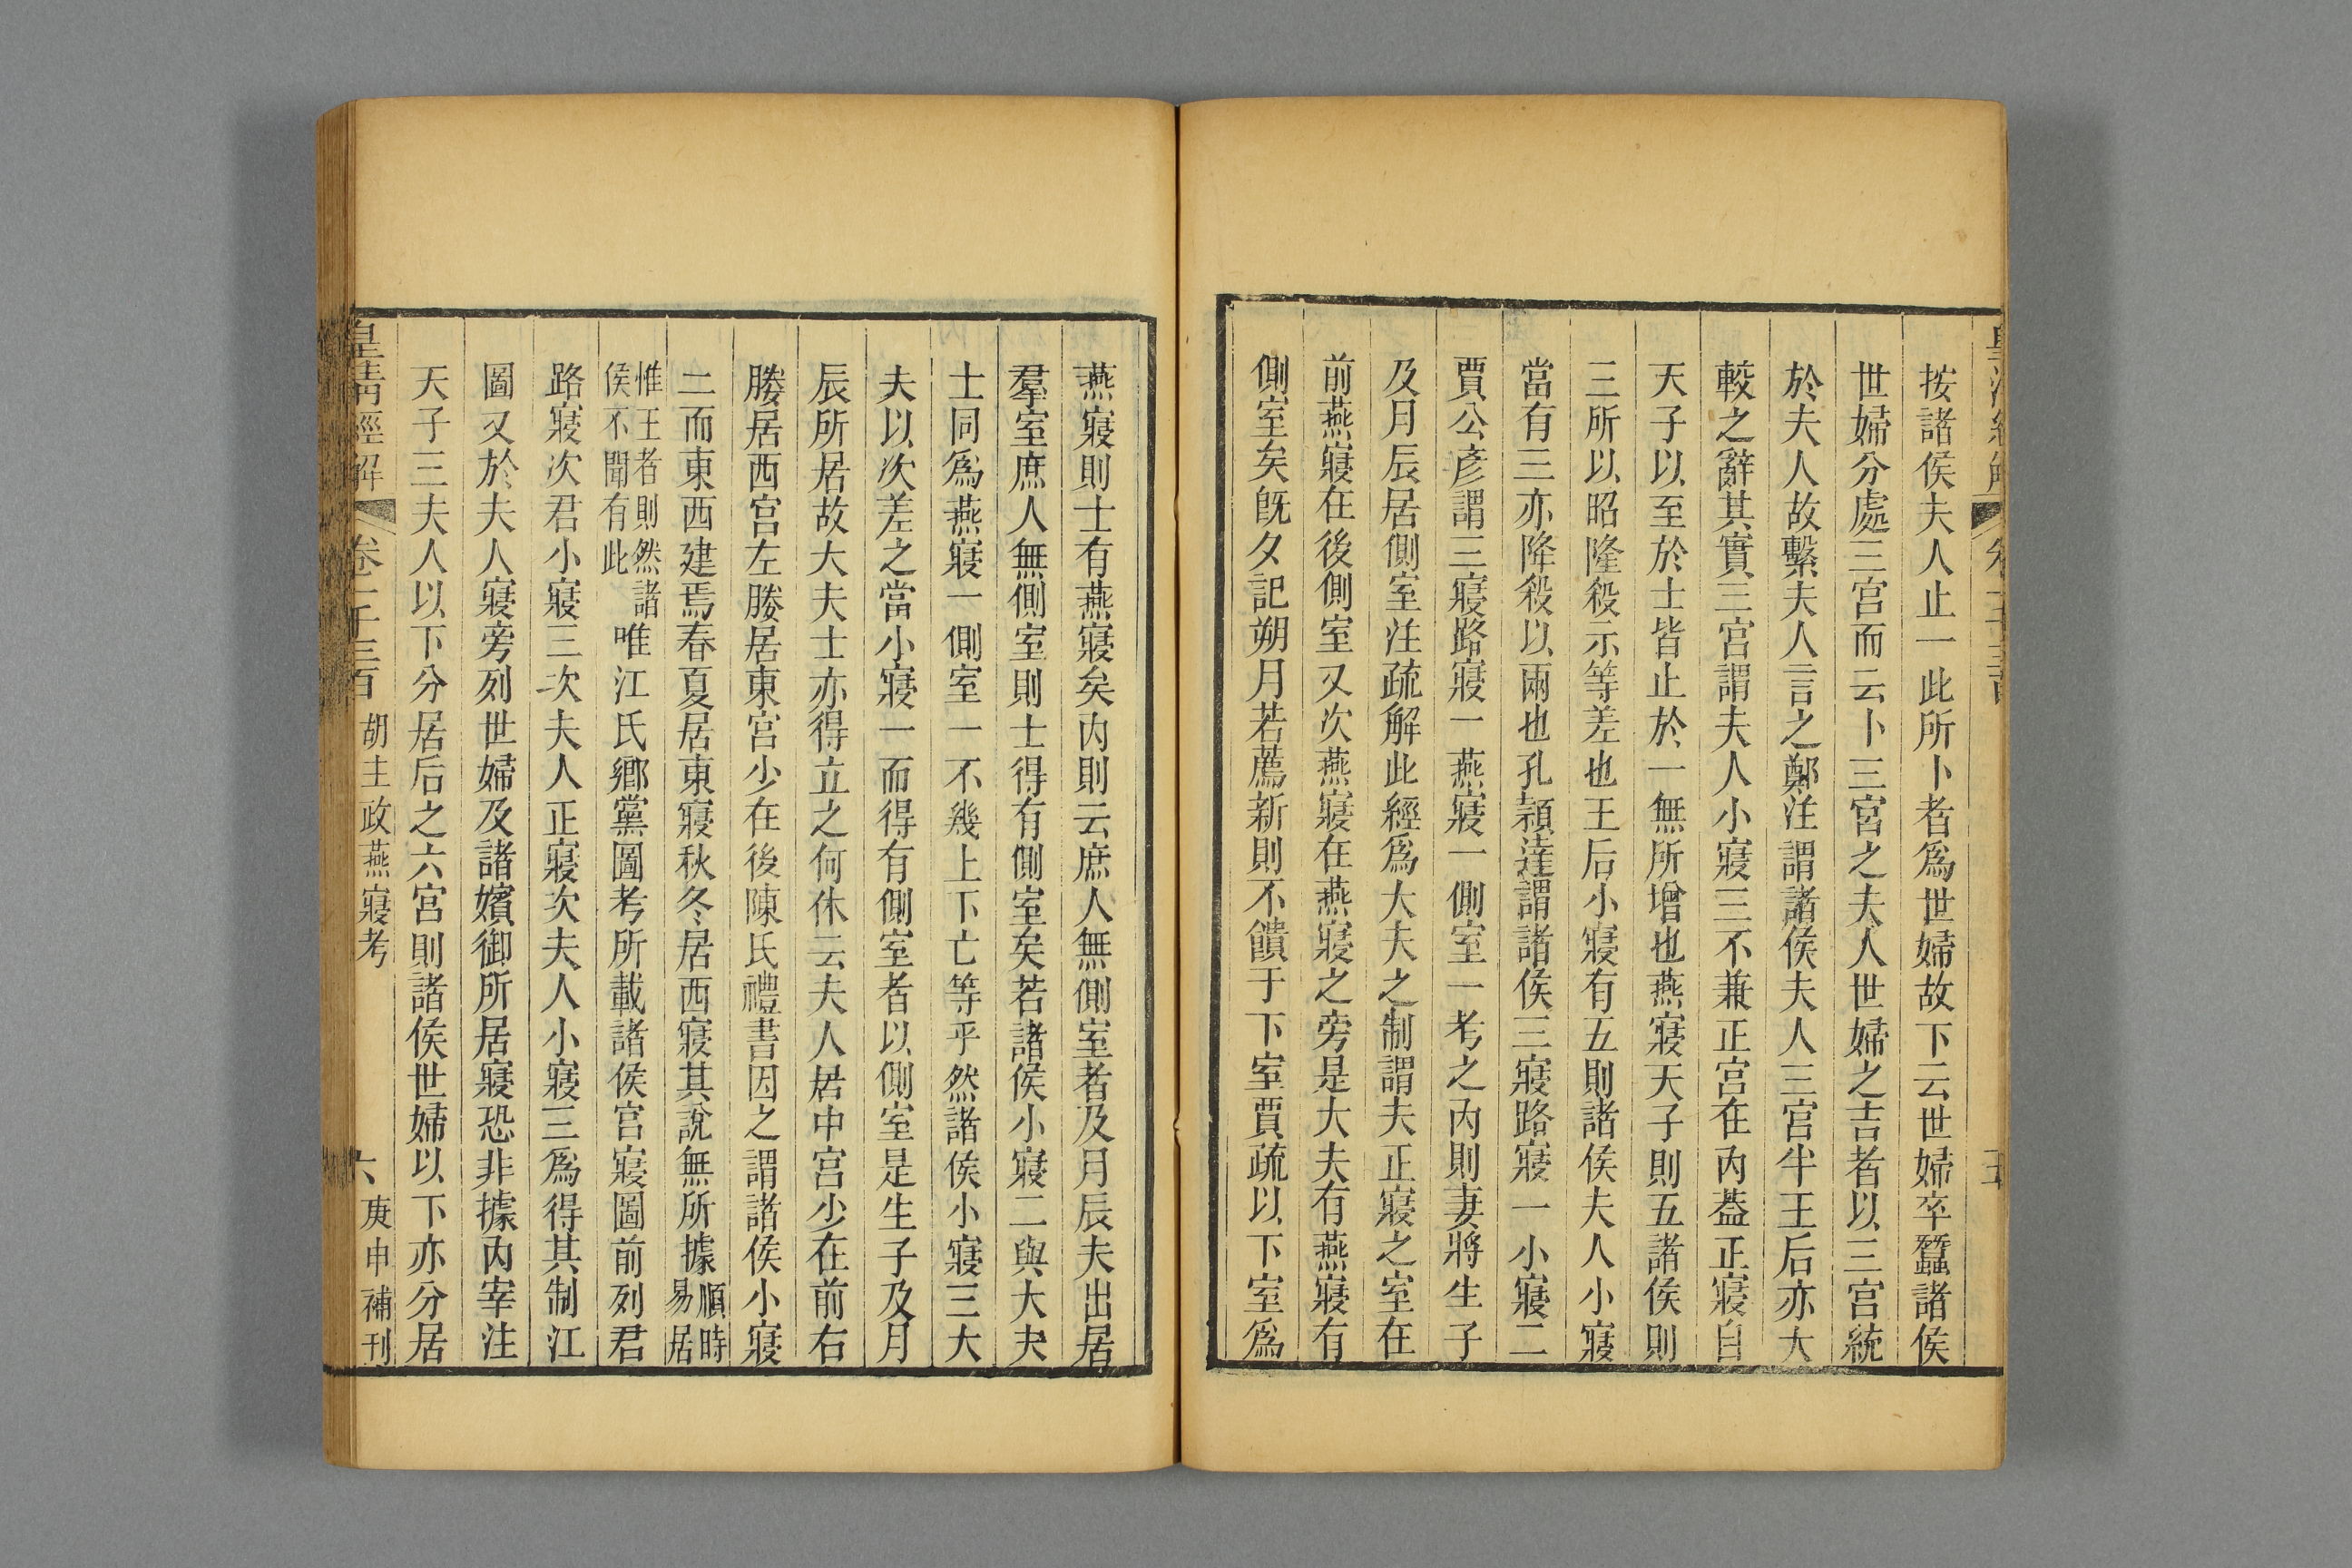 按諸侯夫人止一此所卜者爲世婦故下云世婦卒蠶諸侯
世婦分處三宮而云卜三宮之夫人世婦之吉者以三宮統
於夫人故繫夫人言之鄭注謂諸侯夫人三宮半王后亦大
較之辭其實三宮謂夫人小寢三不兼正宮在內葢正寢自
天子以至於士皆止於一無所增也燕寢天子則五諸侯則
三所以昭隆殺示等差也王后小寢有五則諸侯夫人小寢
當有三亦降殺以兩也孔頴達謂諸侯三寢路寢一小寢二
賈公彥謂三寢路寢一燕寢一側室一考之內則妻將生子
及月辰居側室注疏解此經爲大夫之制謂夫正寢之室在
前燕寢在後側室又次燕寢在燕寢之旁是大夫有燕寢有
側室矣旣夕記朔月若薦新則不饋于下室賈疏以下室爲
燕寢則士有燕寢矣內則云庶人無側室者及月辰夫出居
羣室庶人無側室則士得有側室矣若諸侯小寢二與大夫
士同爲燕寢一側室一不幾上下亡等乎然諸侯小寢三大
夫以次差之當小寢一而得有側室者以側室是生子及月
辰所居故大夫士亦得立之何休云夫人居中宮少在前右
媵居西宮左媵居東宮少在後陳氏禮書因之謂諸侯小寢
二而東西建焉春夏居東寢秋冬居西寢其說無所據順時易居
惟王者則然諸侯不聞有此唯江氏鄉黨圖考所載諸侯宮寢圖前列君
路寢次君小寢三次夫人正寢次夫人小寢三爲得其制江
圖又於夫人寢旁列世婦及諸嬪御所居寢恐非據內宰注
天子三夫人以下分居后之六宮則諸侯世婦以下亦分居
皇清經解 卷一千三百 胡主政燕寢考 六 庚申補刊